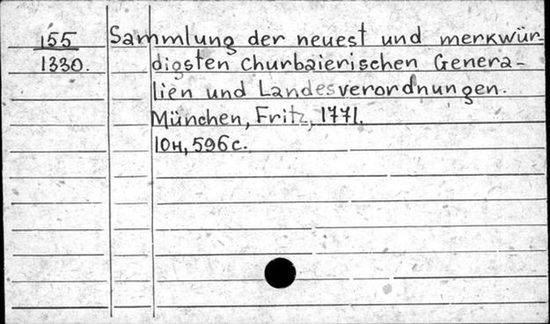 155 Sammlung der neuest und merkwür-
1330. digsten Churbaierischen Genera-
lien und Landesverordnungen.
München, Fritz, 1771.
10н, 596 с.